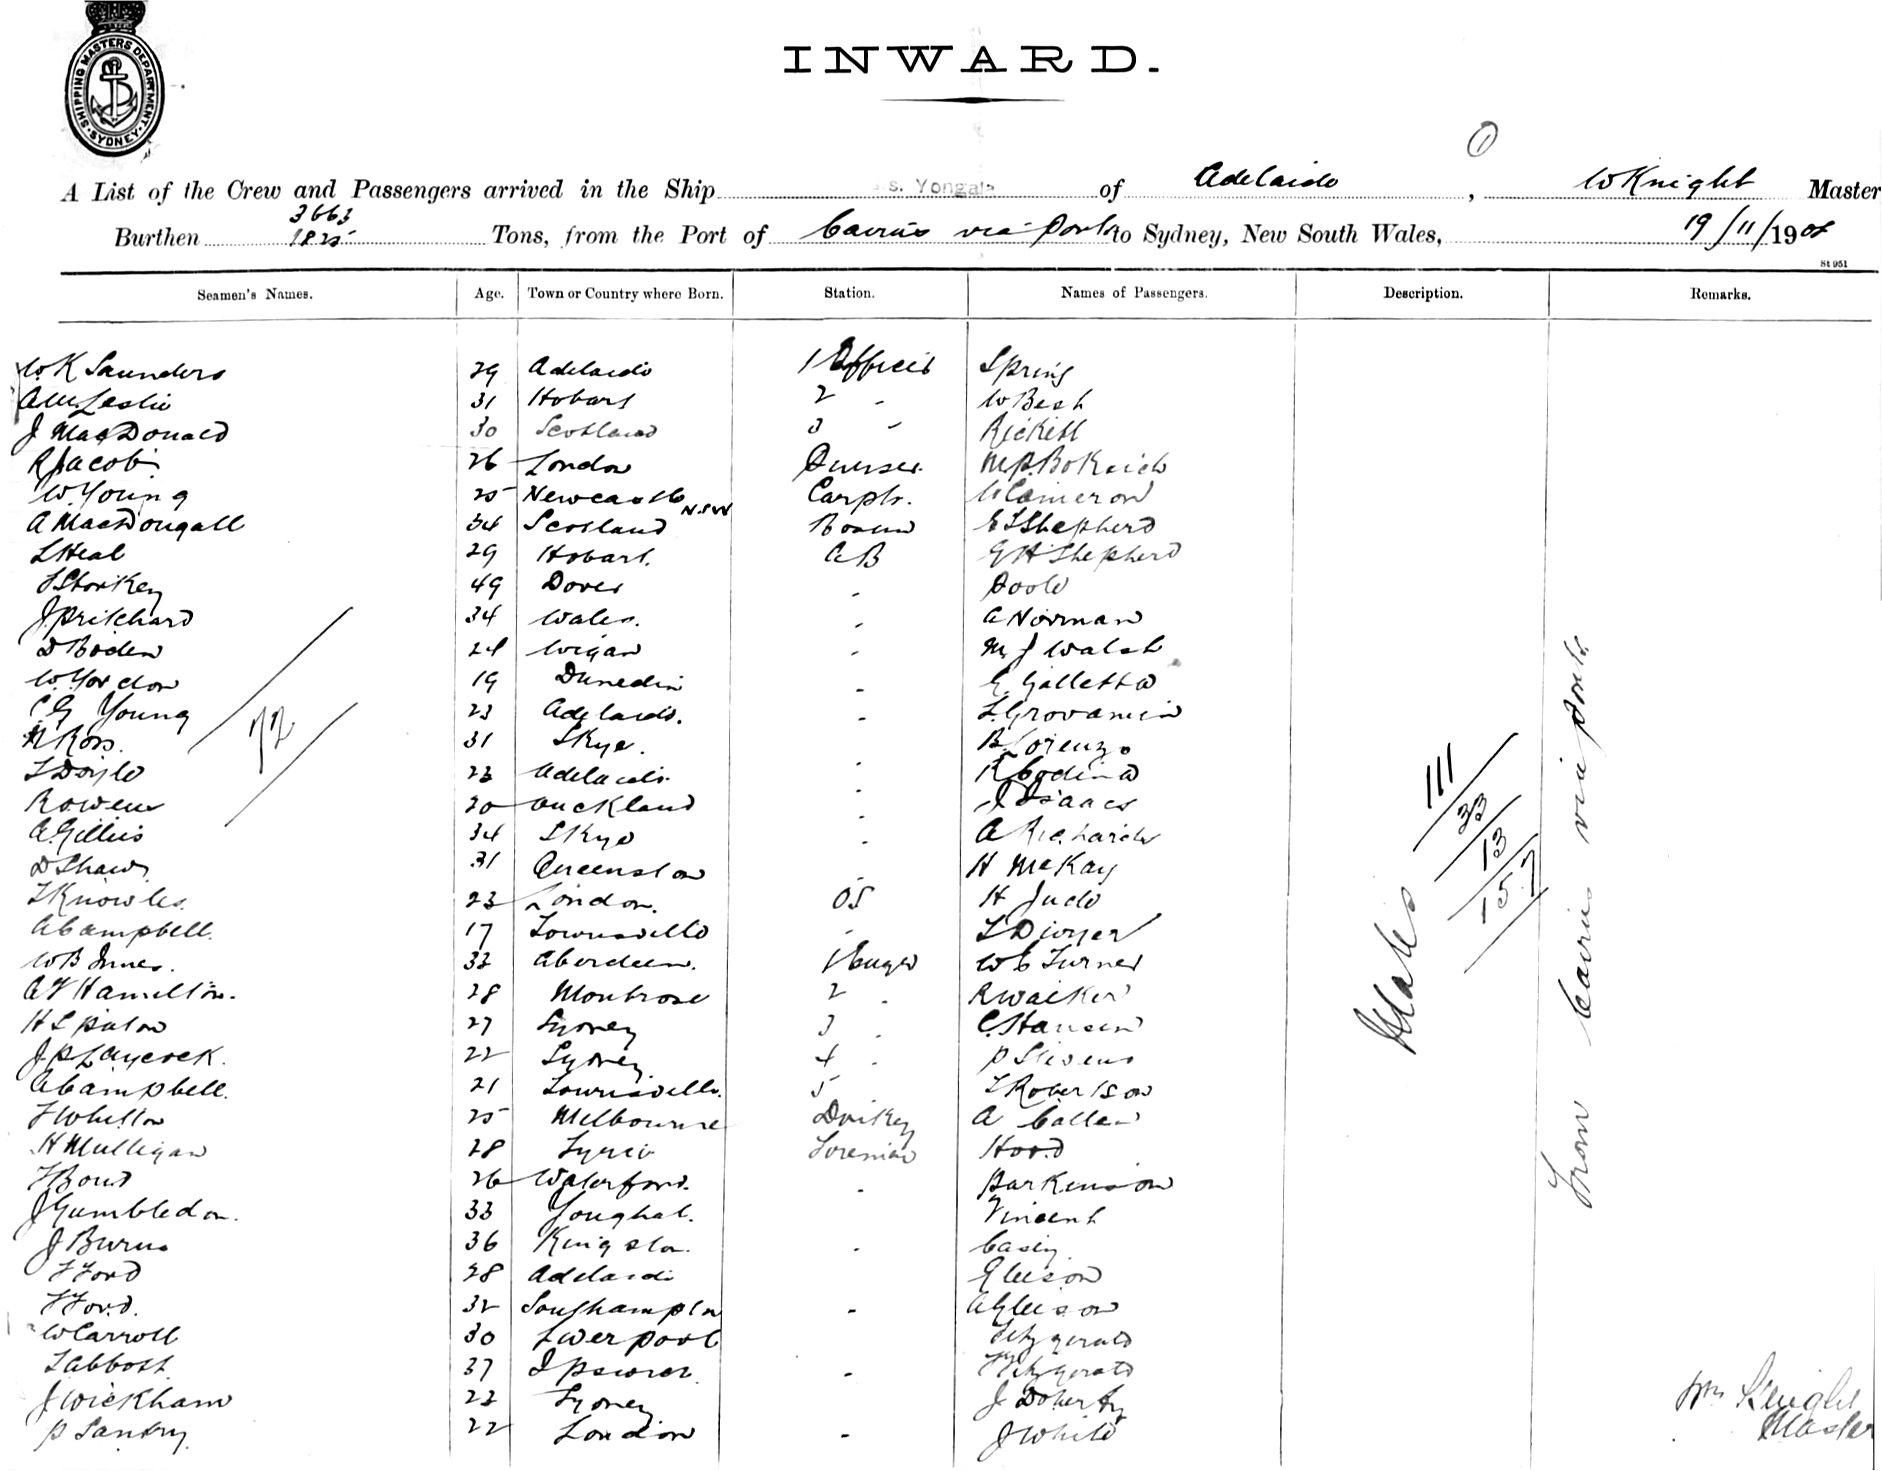 SHIPPING MASTERS DEPARTMENT. SYDNEY
INWARD.
1
A List of the Crew and Passengers arrived in the Ship s.s. Yongala of Adelaide, W Knight Master
3663
Burthen 1825 Tons, from the Port of Cairns via Ports to Sydney, New South Wales, 19/11/1908
St 951
Seamen's Names. Age. Town or Country where Born. Station. Names of Passengers. Description. Remarks.
W. K Saunders 29 Adelaide 1 Officer Spring
A W. Leslie 31 Hobart 2 " W Besh
J MacDonald 30 Scotland 3 " Rickett
R Jacob 26 London Purser
W. Young 25 Newcastle N.S.W Carptr. W Cameron
A MacDougall 34 Scotland Bosun E S Shepherd
S Heal 29 Hobart. A B G H Shepherd
T Storkey 49 Dover " Poole
J. Pritchard 34 Wales. " A Norman
D Boden 24 Wigan " M J Walsh
W. Yordon 19 Dunedin " G. Galletta
C. G Young 23 Adelaide. " L. Grovannin
N Ross. 31 Skye. " B. Lorenzo
T Doyle 23 Adelaide. " R Codina
R Owens 20 Auckland " J Isaacs
A. Gillies 34 Skye " A Richards
D Shaw 31 Queenston " H McKay
T Knowles. 23 London. OS H Judo
A Campbell. 17 Townsville " T Dwyer
W B Innes. 33 Aberdeen. 1 Enger W C Turner
A F Hamilton. 28 Montrose 2 " R Walker
H S paton 27 Sydney 3 " C. Hansen
J P Laycock. 22 Sydney 4 " P Stevens
A Campbell. 21 Townsville. 5 T Robertson
F Whitton 25 Melbourne Dnkey A Callen
H Mulligan 28 Syria Foreman Hood
T Bond 26 Waterford. " Barkinson
J Gumbledon. 33 Youghal. Vincent
J Burns 36 Kingston. " Casey
T Ford 28 Adelaide Gleeson
T Ford. 32 Southampton " A Gleeson
W Carroll 30 Liverpool Fitzgerald
T Abbott 37 Ipswich " Fitzgerald
J Wickham 23 Sydney J Doherty
P Santry 22 London " J White
72
Males
111
33
13
157
From Cairns via ports
Wm Knight
Master